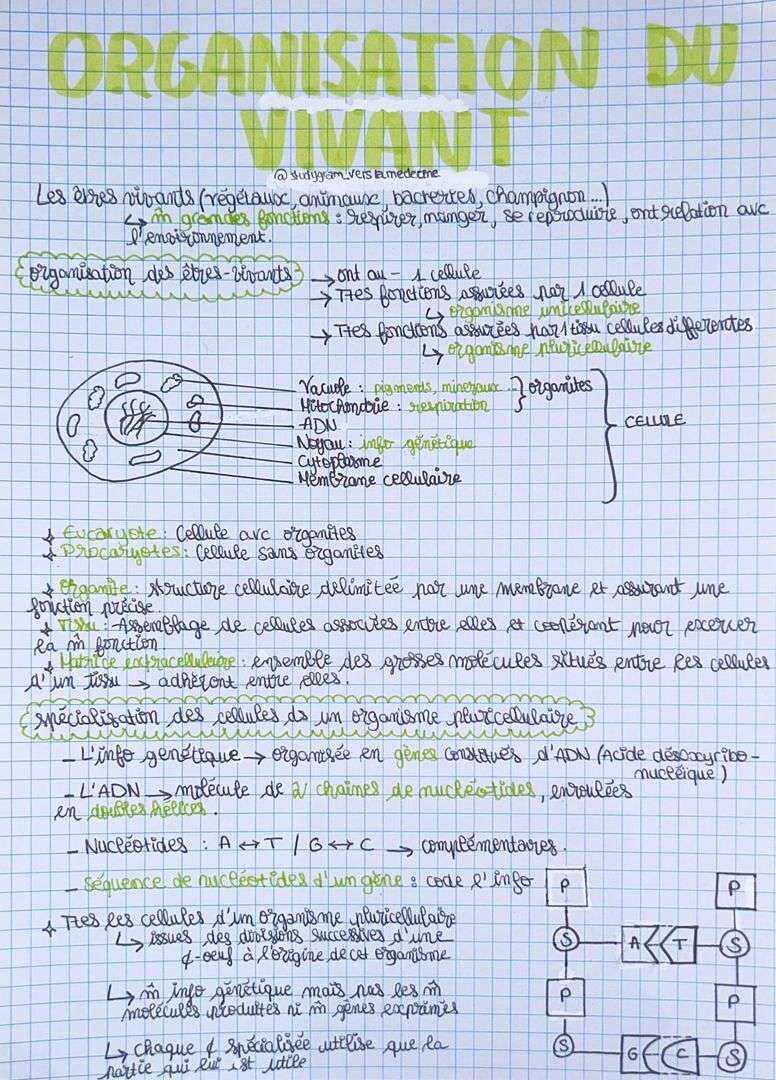 ORGANISATION DU
VIVANT
@studygram_vers_la_medecine
Les êtres vivants (végétaux, animaux, bacteries, champignon...)
↳ m̂ grandes fonctions : respirer, manger, se reproduire, ont relation avc
l'environnement.
organisation des êtres-vivants
→ ont au - 1 cellule
→ Ttes fonctions assurées par 1 cellule
↳ organisme unicellulaire
→ Ttes fonctions assurées par 1 tissu cellules differentes
↳ organisme pluricellulaire
Vacuole : pigments, mineraux ... } organites
Mitochondrie : respiration
ADN
Noyau : info génétique
Cytoplasme
Membrane cellulaire
CELLULE
Eucaryote : Cellule avc organites
Procaryotes : Cellule sans organites
Organite : structure cellulaire délimitée par une membrane et assurant une
fonction précise.
Tissu : Assemblage de cellules associées entre elles et coopérant pour exercer
la m̂ fonction.
Matrice extracellulaire : ensemble des grosses molécules situés entre les cellules
d'un tissu → adhèront entre elles.
spécialisation des cellules ds un organisme pluricellulaire
- L'info genétique → organisée en gènes constitués d'ADN (Acide désoxyribo-
nucléique)
- L'ADN → molécule de 2 chaines de nucléotides, enroulées
en doubles hélices.
- Nucléotides : A ↔ T / G ↔ C → complémentaires.
- Séquence de nucléotides d'un gène : code l'info
Ttes les cellules d'un organisme pluricellulaire
↳ issues des divisions successives d'une
¢-oeuf à l'origine de cet organisme
↳ m̂ info génétique mais pas les m̂
molécules produites ni m̂ gènes exprimés
↳ chaque ¢ spécialisée utilise que la
partie qui lui est utile
P P
S A T S
P P
S G C S